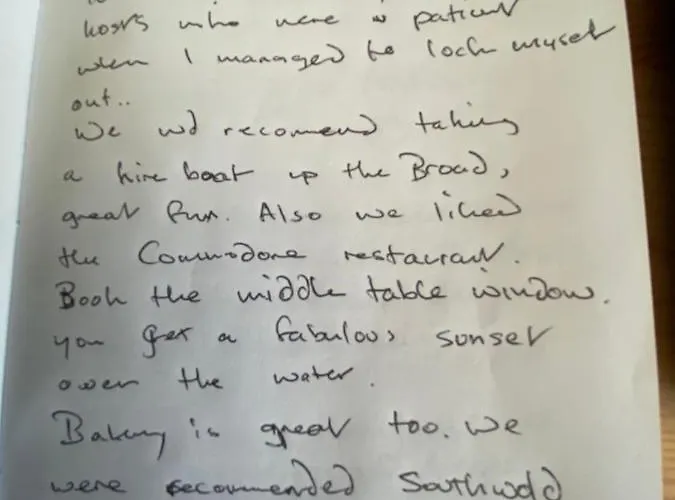 hosts who were so patient
when I managed to lock myself
out..
We wd recomend taking
a hire boat up the Broad,
great fun. Also we liked
the Commodore restaurant.
Book the middle table window.
you get a fabulous sunset
over the water.
Bakery is great too. We
were recommended Southwold